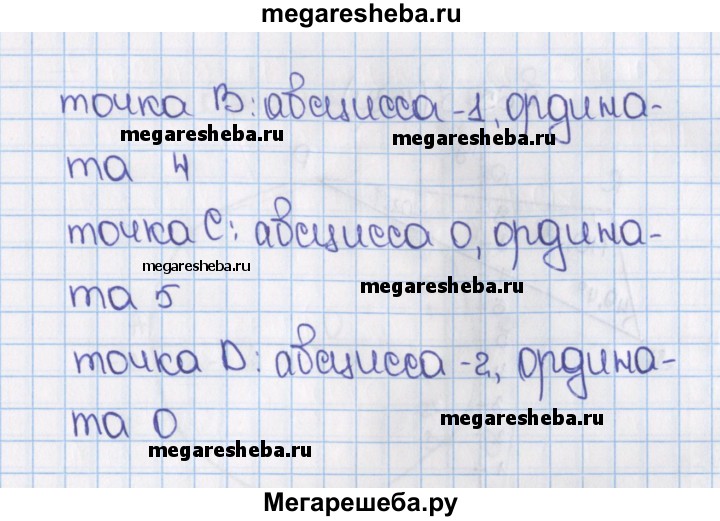 megaresheba.ru
точка В: абсцисса -1, ордина-
megaresheba.ru megaresheba.ru
та 4
точка С: абсцисса 0, ордина-
megaresheba.ru megaresheba.ru
та 5
точка D: абсцисса -2, ордина-
та 0 megaresheba.ru
megaresheba.ru
Мегарешеба.ру